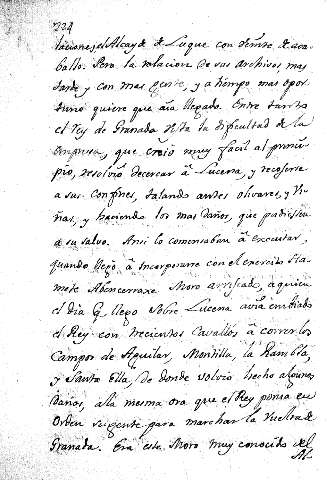 224
laciones, el Alcayde de Luque con veinte de aca
ballo. Pero la relacion de sus Archivos, mas
tarde y con mas gente, y a tiempo mas opor
tuno quiere que aia llegado. Entre tanto
el Rey de Granada vista la dificultad de la
empresa, que creió muy facil al princi
pio, resolvió decercar à Lucena, y recogerse
a sus confines, talando antes olivares, y Vi
ñas, y haciendo los mas daños, que pudiessen
a su salvo. Ansi lo comensaban à executar,
quando llegò à incorporarse con el exercito Ha
mete Abencerraxe Moro arriscado, a quien
el dia q llego sobre Lucena avia embiado
el Rey con trecientos Cavallos à correr los
Campos de Aguilar, Montilla, la Rambla,
y Santa Ella, de donde volvio hecho algunos
daños, a la mesma ora que el Rey ponia en
Orden su gente para marchar la Vuelta de
Granada. Era este Moro muy conocido del
Al-